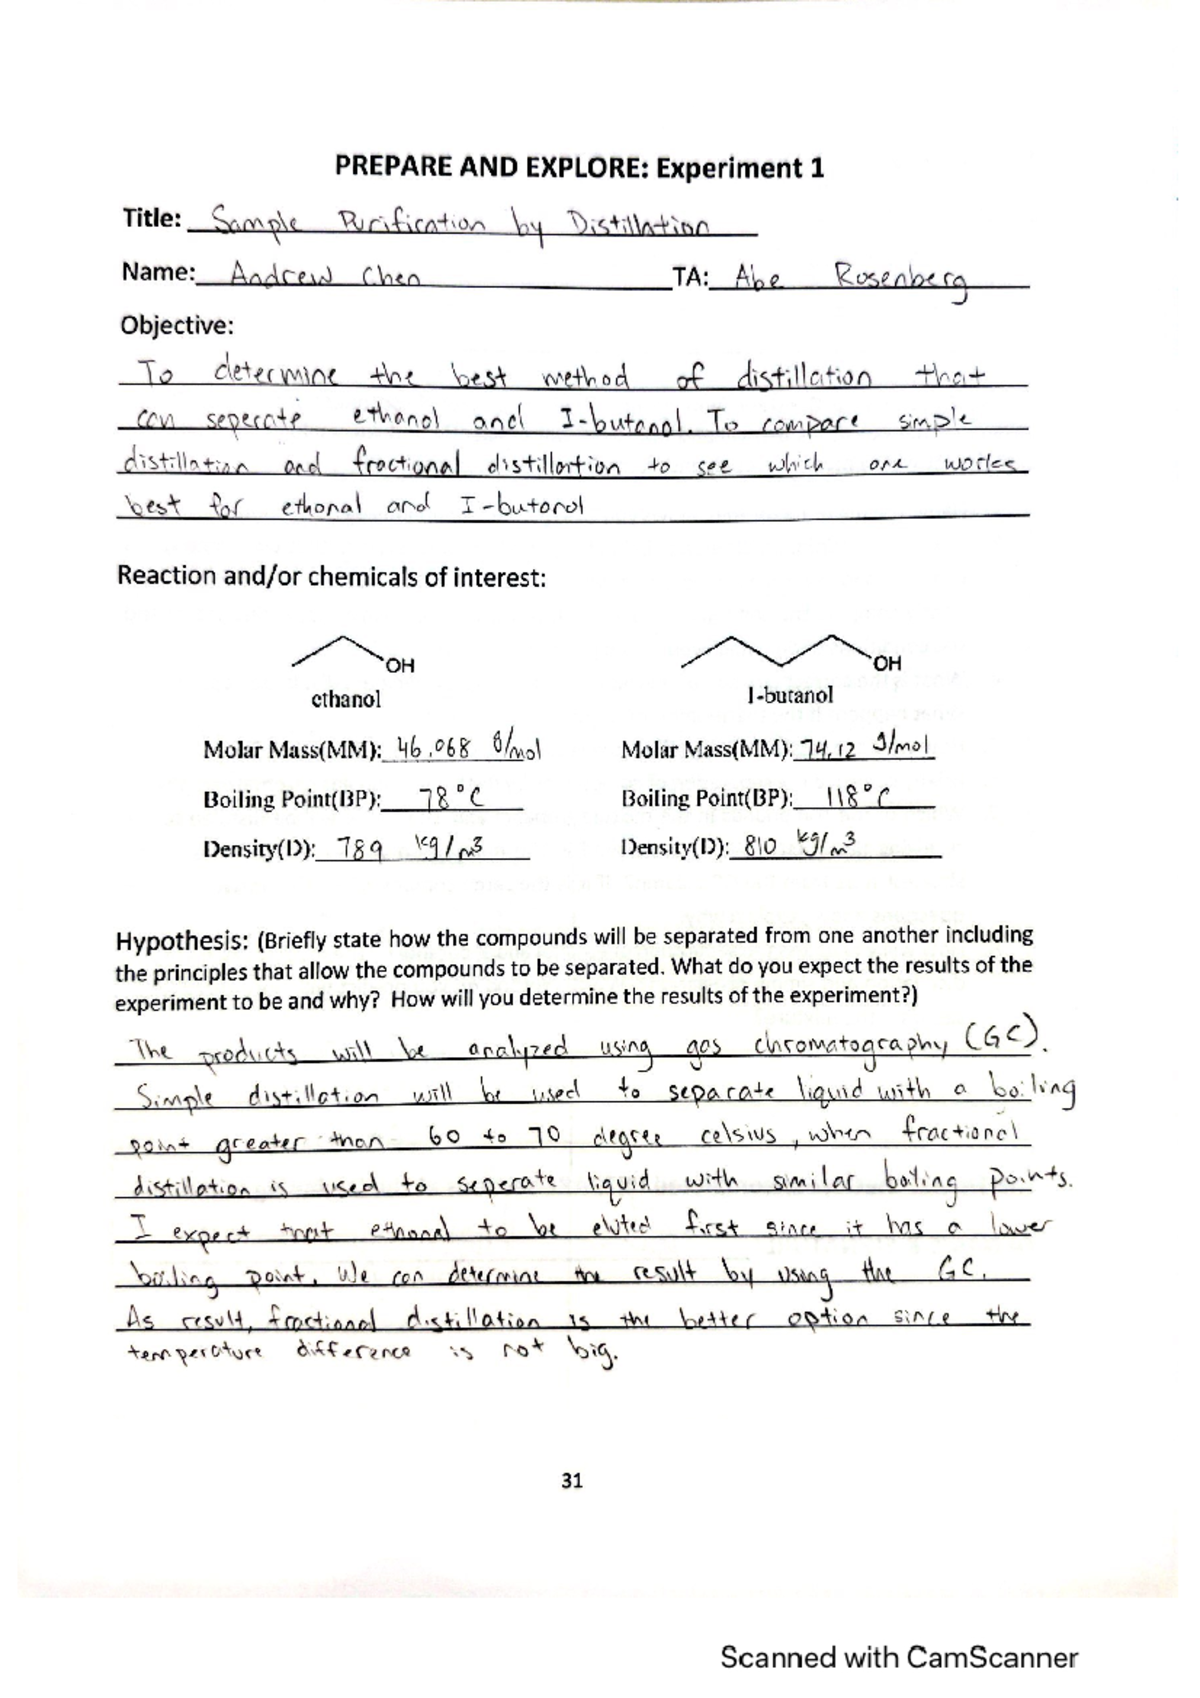 PREPARE AND EXPLORE: Experiment 1
Title: Sample Purification by Distillation
Name: Andrew Chen TA: Abe Rosenberg
Objective:
To determine the best method of distillation that
can seperate ethanol and I-butanol. To compare simple
distillation and fractional distillation to see which one works
best for ethanol and I-butanol
Reaction and/or chemicals of interest:
OH OH
ethanol 1-butanol
Molar Mass(MM): 46.068 g/mol Molar Mass(MM): 74.12 g/mol
Boiling Point(BP): 78°C Boiling Point(BP): 118°C
Density(D): 789 kg/m3 Density(D): 810 kg/m3
Hypothesis: (Briefly state how the compounds will be separated from one another including
the principles that allow the compounds to be separated. What do you expect the results of the
experiment to be and why? How will you determine the results of the experiment?)
The products will be analyzed using gas chromatography (GC).
Simple distillation will be used to separate liquid with a boiling
point greater than 60 to 70 degree celsius, when fractional
distillation is used to seperate liquid with similar boiling points.
I expect that ethanol to be eluted first since it has a lower
boiling point. We can determine the result by using the GC.
As result, fractional distillation is the better option since the
temperature difference is not big.
31
Scanned with CamScanner